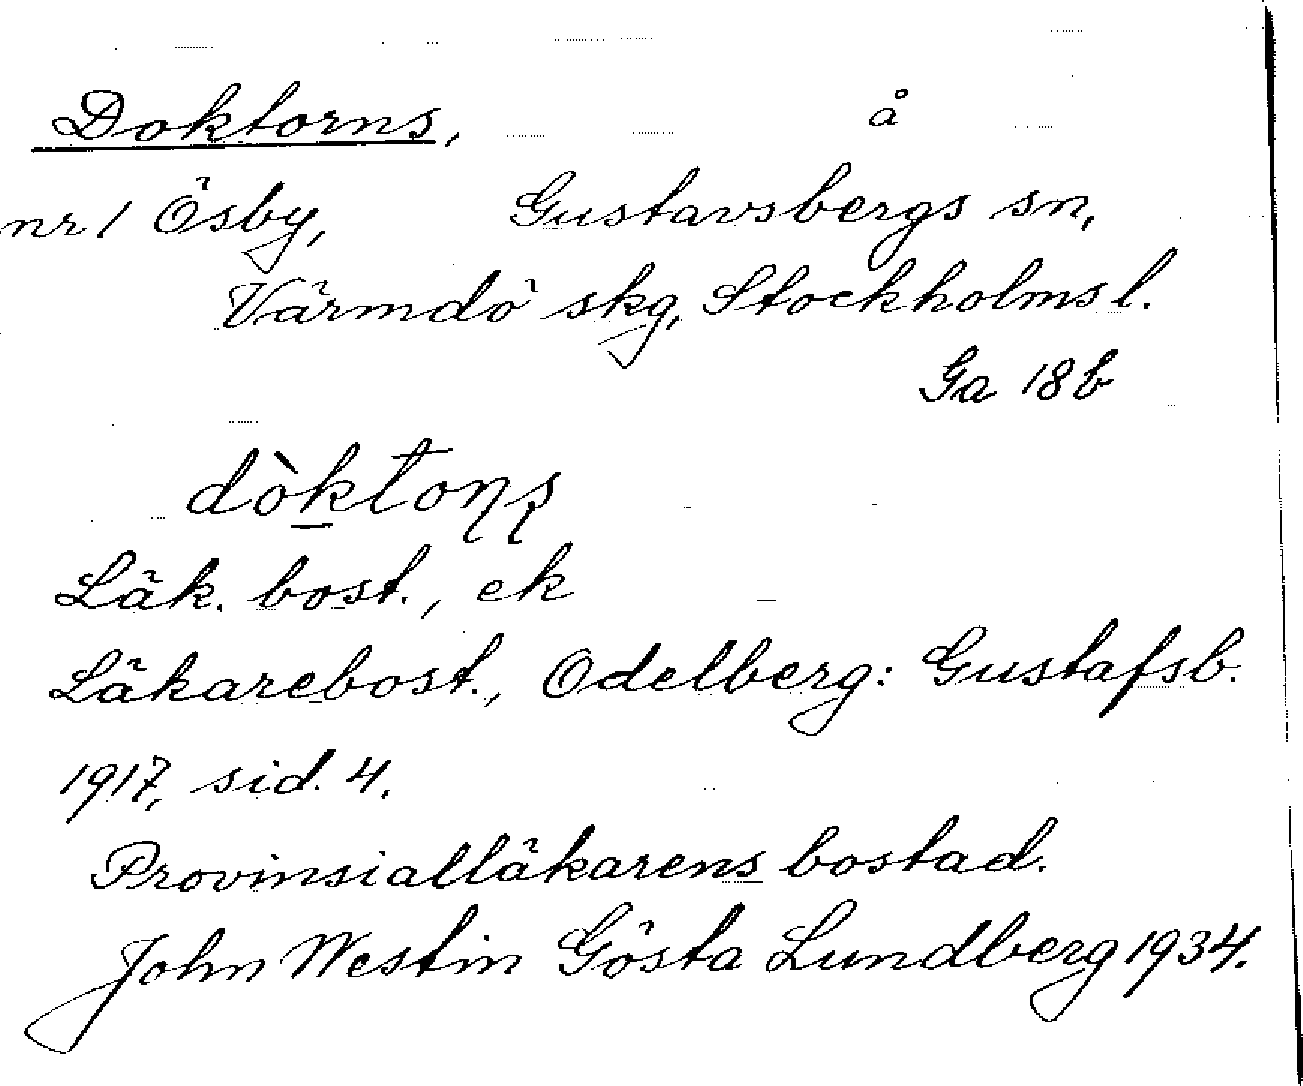 Doktorns, å
nr 1 Ösby, Gustavsbergs sn,
Värmdö skg, Stockholms l.
Ga 18b
dòktoɳʂ
Läk. bost., ek
Läkarebost., Odelberg: Gustafsb.
1917, sid. 4.
Provinsialläkarens bostad.
John Westin Gösta Lundberg 1934.